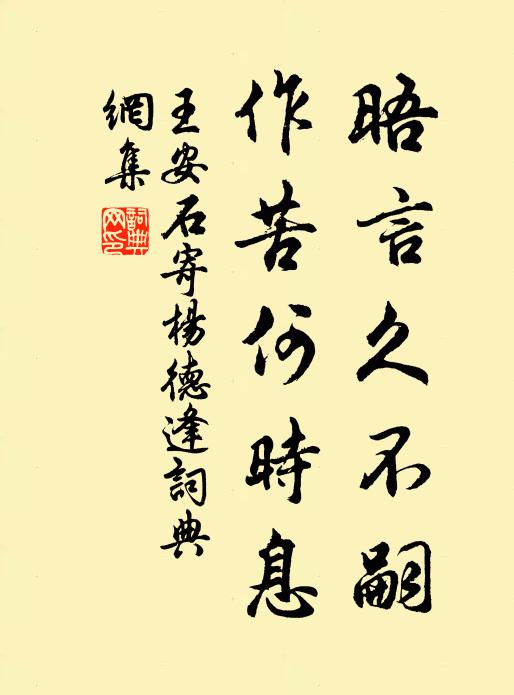 晤言久不嗣
作苦何時息
王安石寄楊德逢詞典
網集
詞典
网印